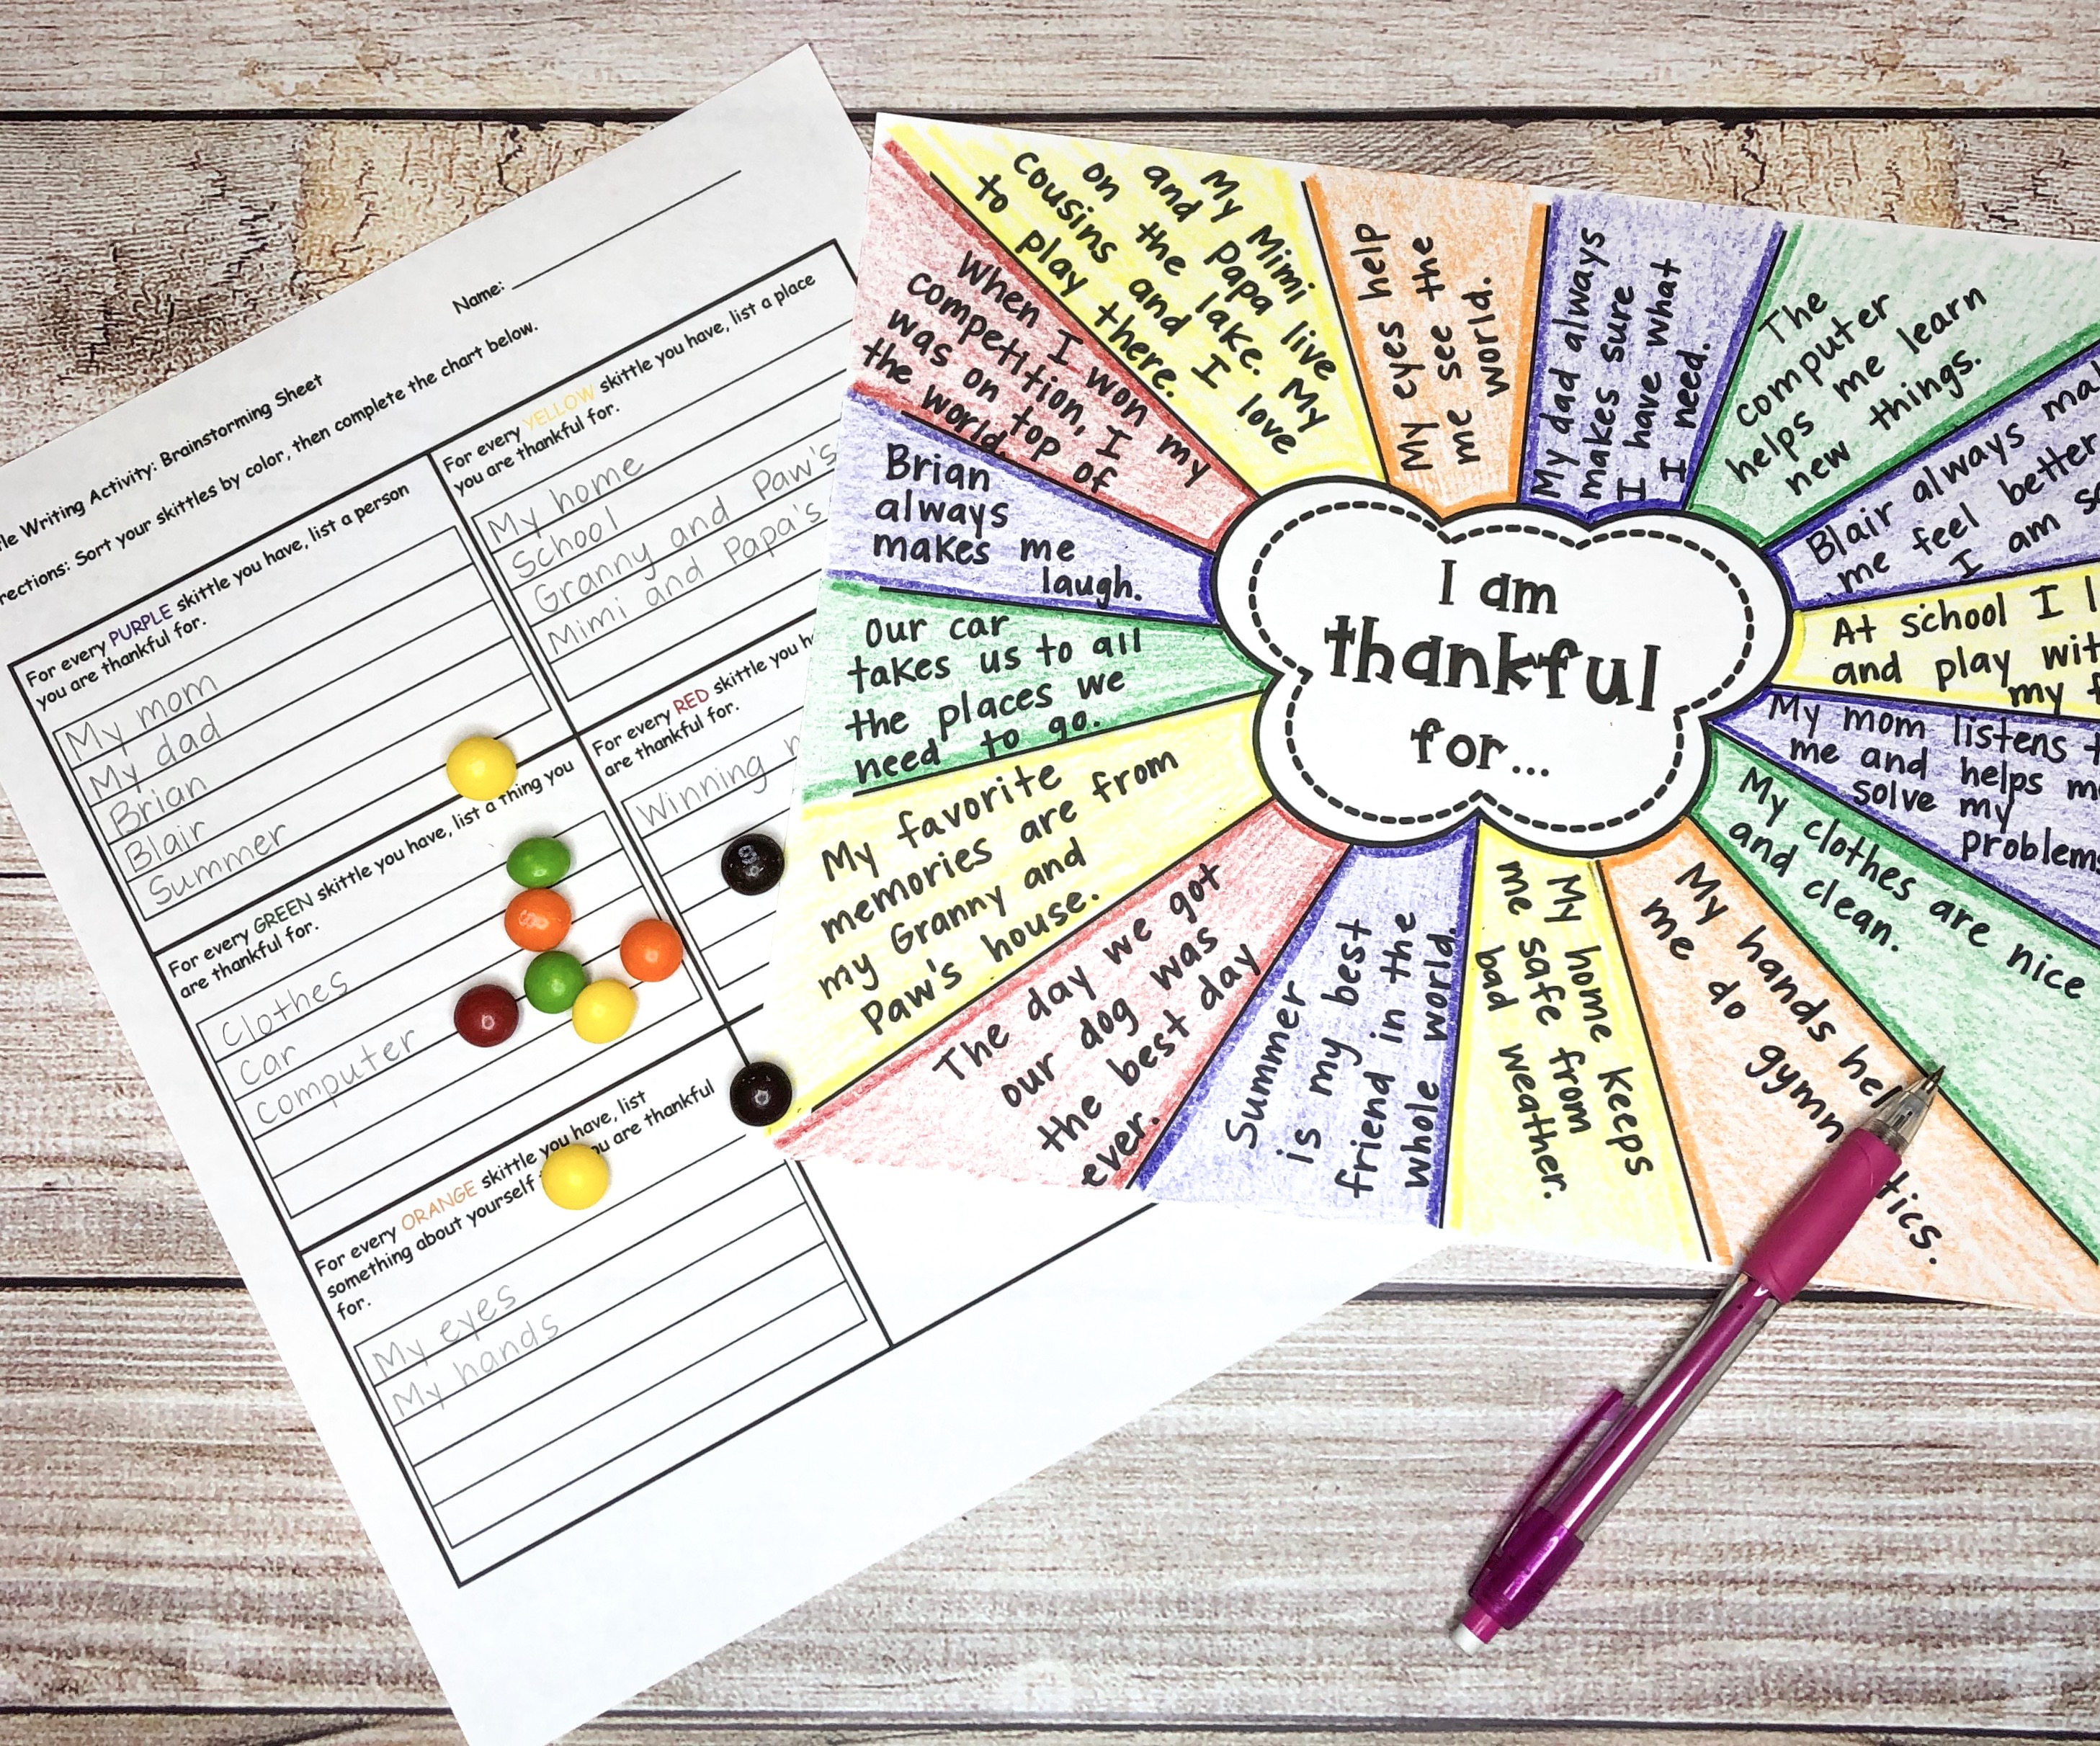 Name:
Writing Activity: Brainstorming Sheet
Sort your skittles by color, then complete the chart below.
For every PURPLE skittle you have, list a person
you are thankful for.
My mom
My dad
Brian
Blair
Summer
For every YELLOW skittle you have, list a place
you are thankful for.
My home
School
Granny and Paw's
Mimi and Papa's
For every GREEN skittle you have, list a thing you
are thankful for.
Clothes
Car
Computer
For every RED skittle you
are thankful for.
Winning
For every ORANGE skittle you have, list
something about yourself you are thankful
for.
My eyes
My hands
S
I am
thankful
for...
When I won my
competition, I
was on top of
the world.
My Mimi
and Papa live
on the lake. My
cousins and I love
to play there.
My eyes help
me see the
world.
My dad always
makes sure
I have what
I need.
The
computer
helps me learn
new things.
Blair always
me feel better
I am
At school I
and play
my
My mom listens
me and helps
solve my
problems
My clothes are nice
and clean.
My hands
me do
My home keeps
me safe from
bad weather.
Summer
is my best
friend in the
whole world.
The day we got
our dog was
the best day
ever.
My favorite
memories are from
my Granny and
Paw's house.
Our car
takes us to all
the places we
need to go.
Brian
always
makes me
laugh.